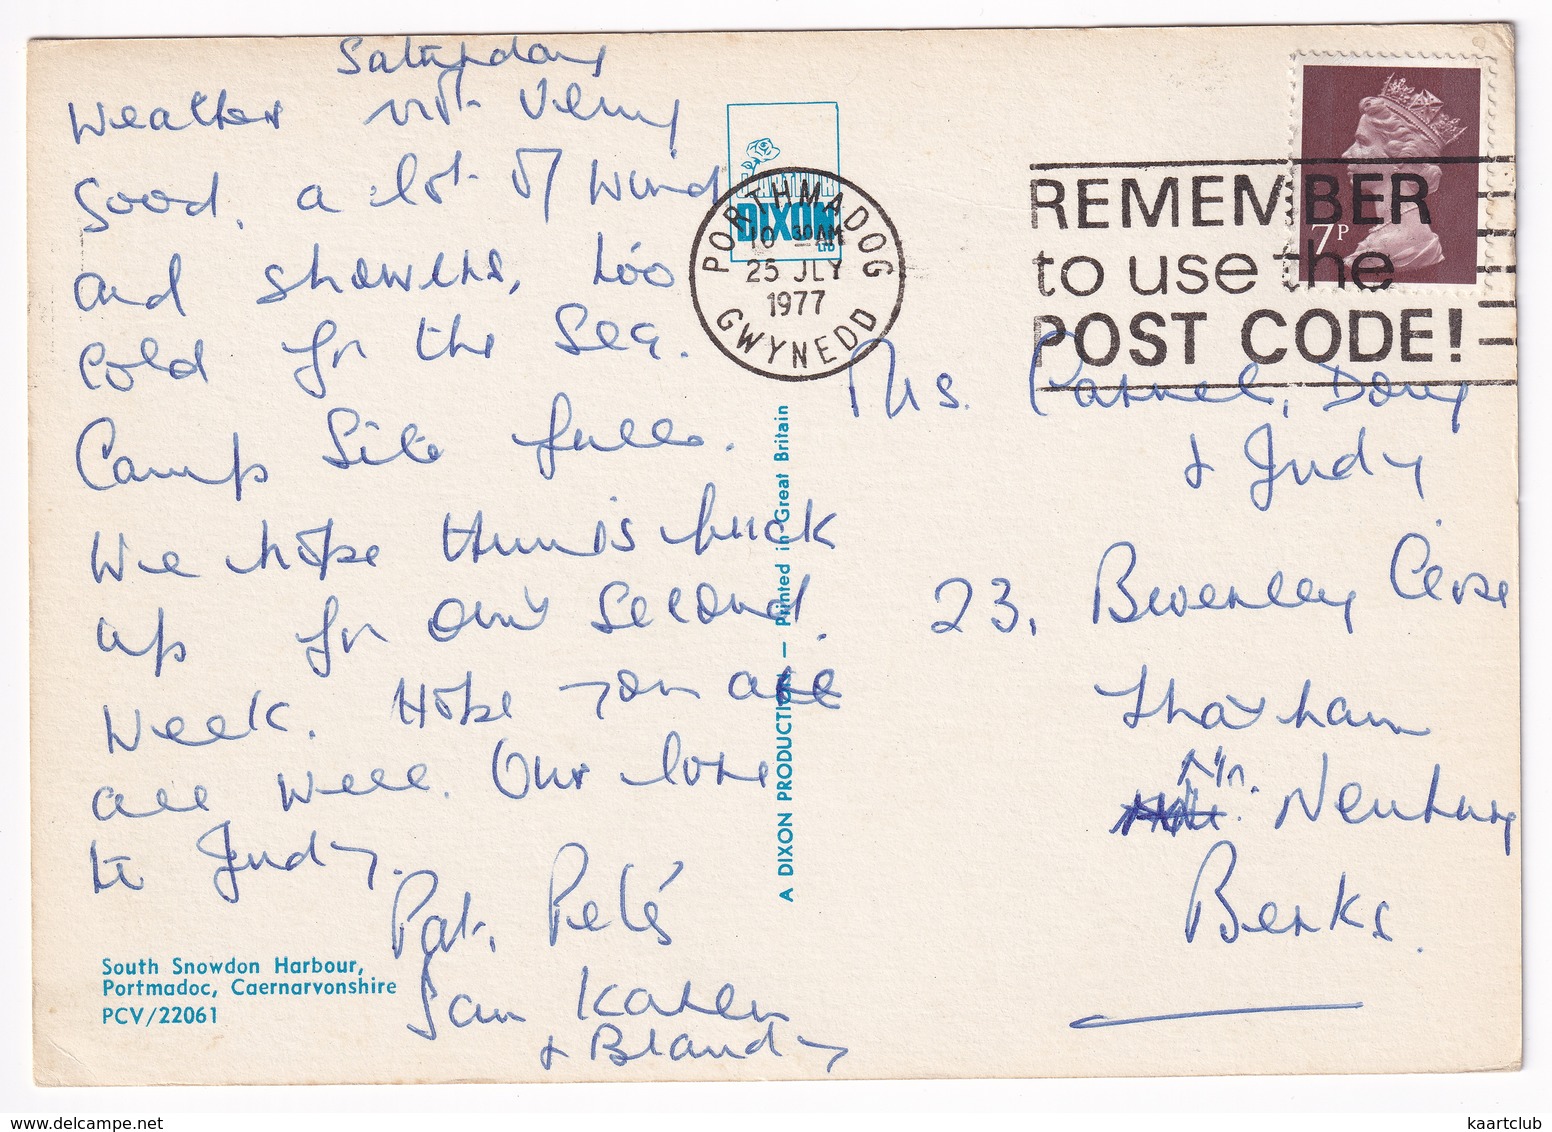 Saturday
Weather not very
good, a lot of wind
and showers, too
cold for the sea.
Camp site full.
We hope things buck
up for our second
week. Hope you are
all well. Our love
to Judy.
Pat, Pete
Ian Karen
& Brandy
South Snowdon Harbour,
Portmadoc, Caernarvonshire
PCV/22061
ARTHUR
DIXON
LTD
A DIXON PRODUCTION — Printed in Great Britain
PORTHMADOG
10 30AM
25 JLY
1977
GWYNEDD
REMEMBER
to use the
POST CODE!
7P
Mrs. Doug
& Judy
23, Beverley Close
Thatcham
Nr. Newbury
Berks.
delcampe.net
kaartclub